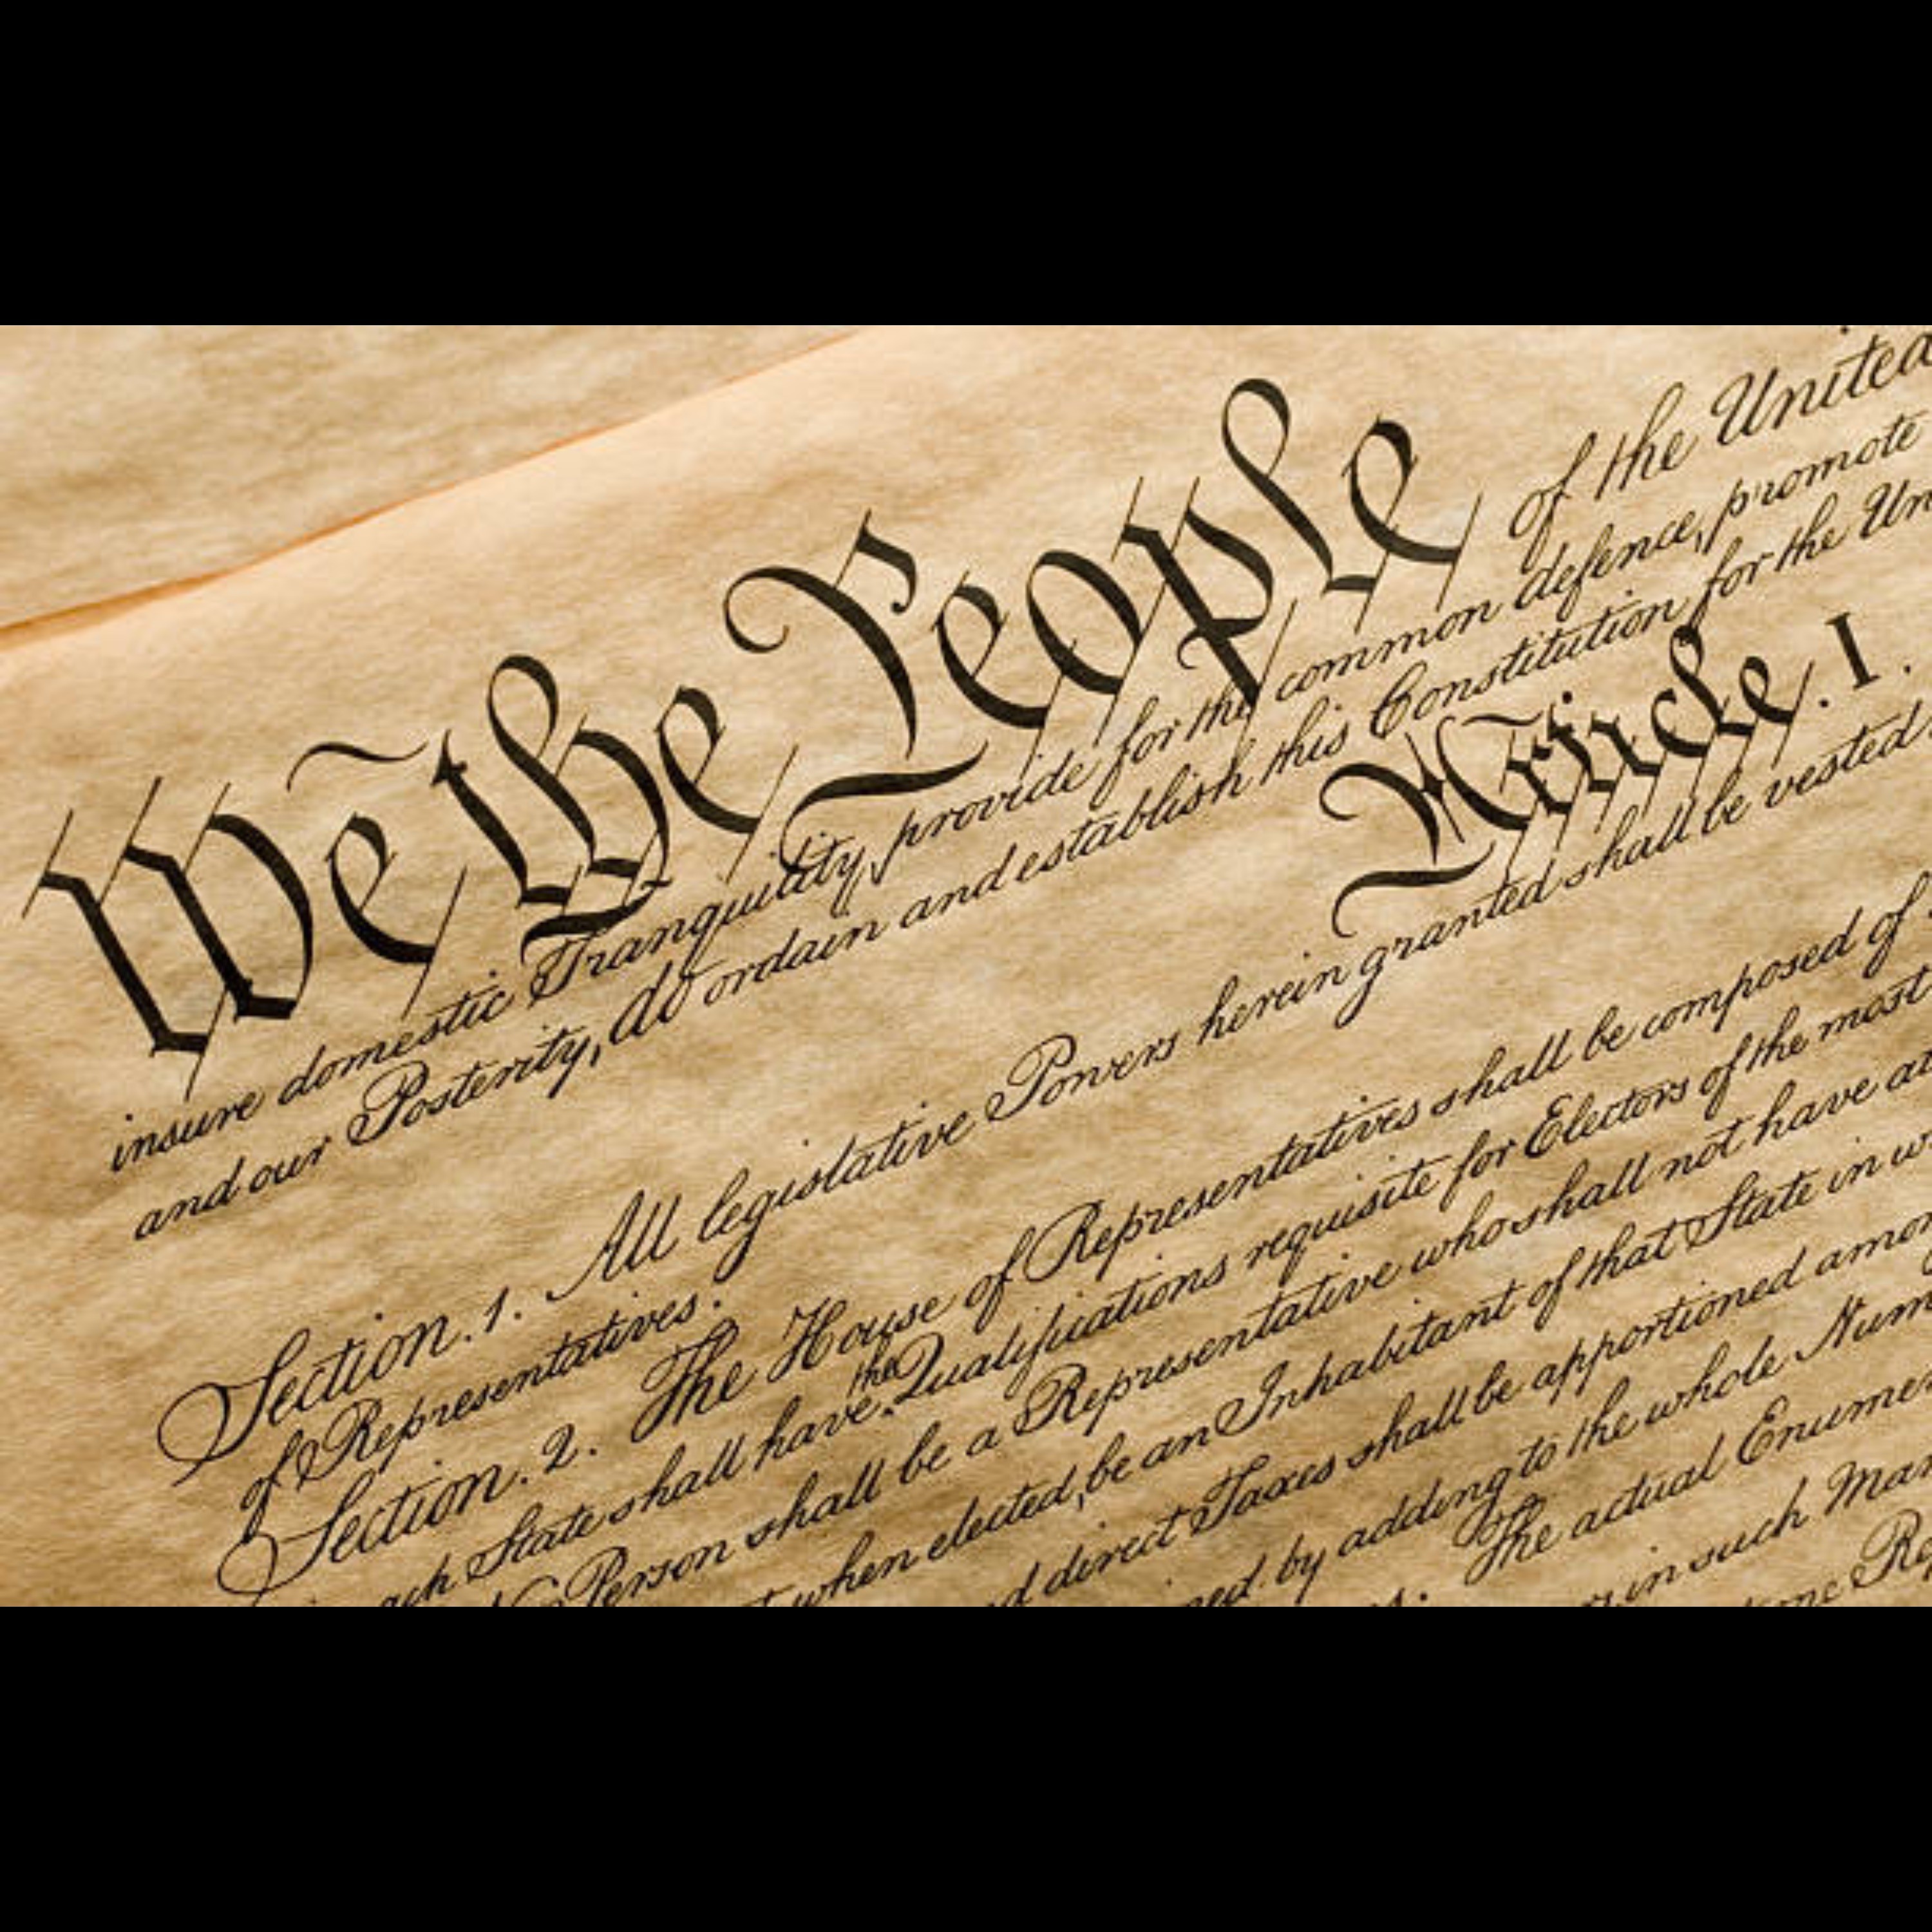 We the People of the United
insure domestic Tranquility, provide for the common defence, promote
and our Posterity, do ordain and establish this Constitution for the Un
Article. I.
Section. 1. All legislative Powers herein granted shall be vested
of Representatives.
Section. 2. The House of Representatives shall be composed of
each State shall have the Qualifications requisite for Electors of the most
No Person shall be a Representative who shall not have at
when elected, be an Inhabitant of that State in w
direct Taxes shall be apportioned amon
by adding to the whole Num
The actual Enume
in such Man
one Re